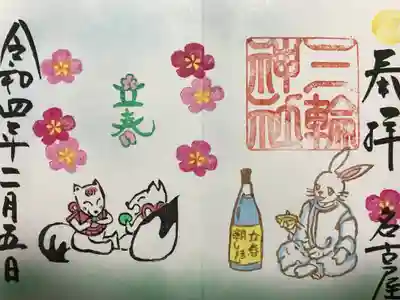 奉拝
名古屋
三輪
神社
立春
立春
朝しぼり
令和四年二月五日